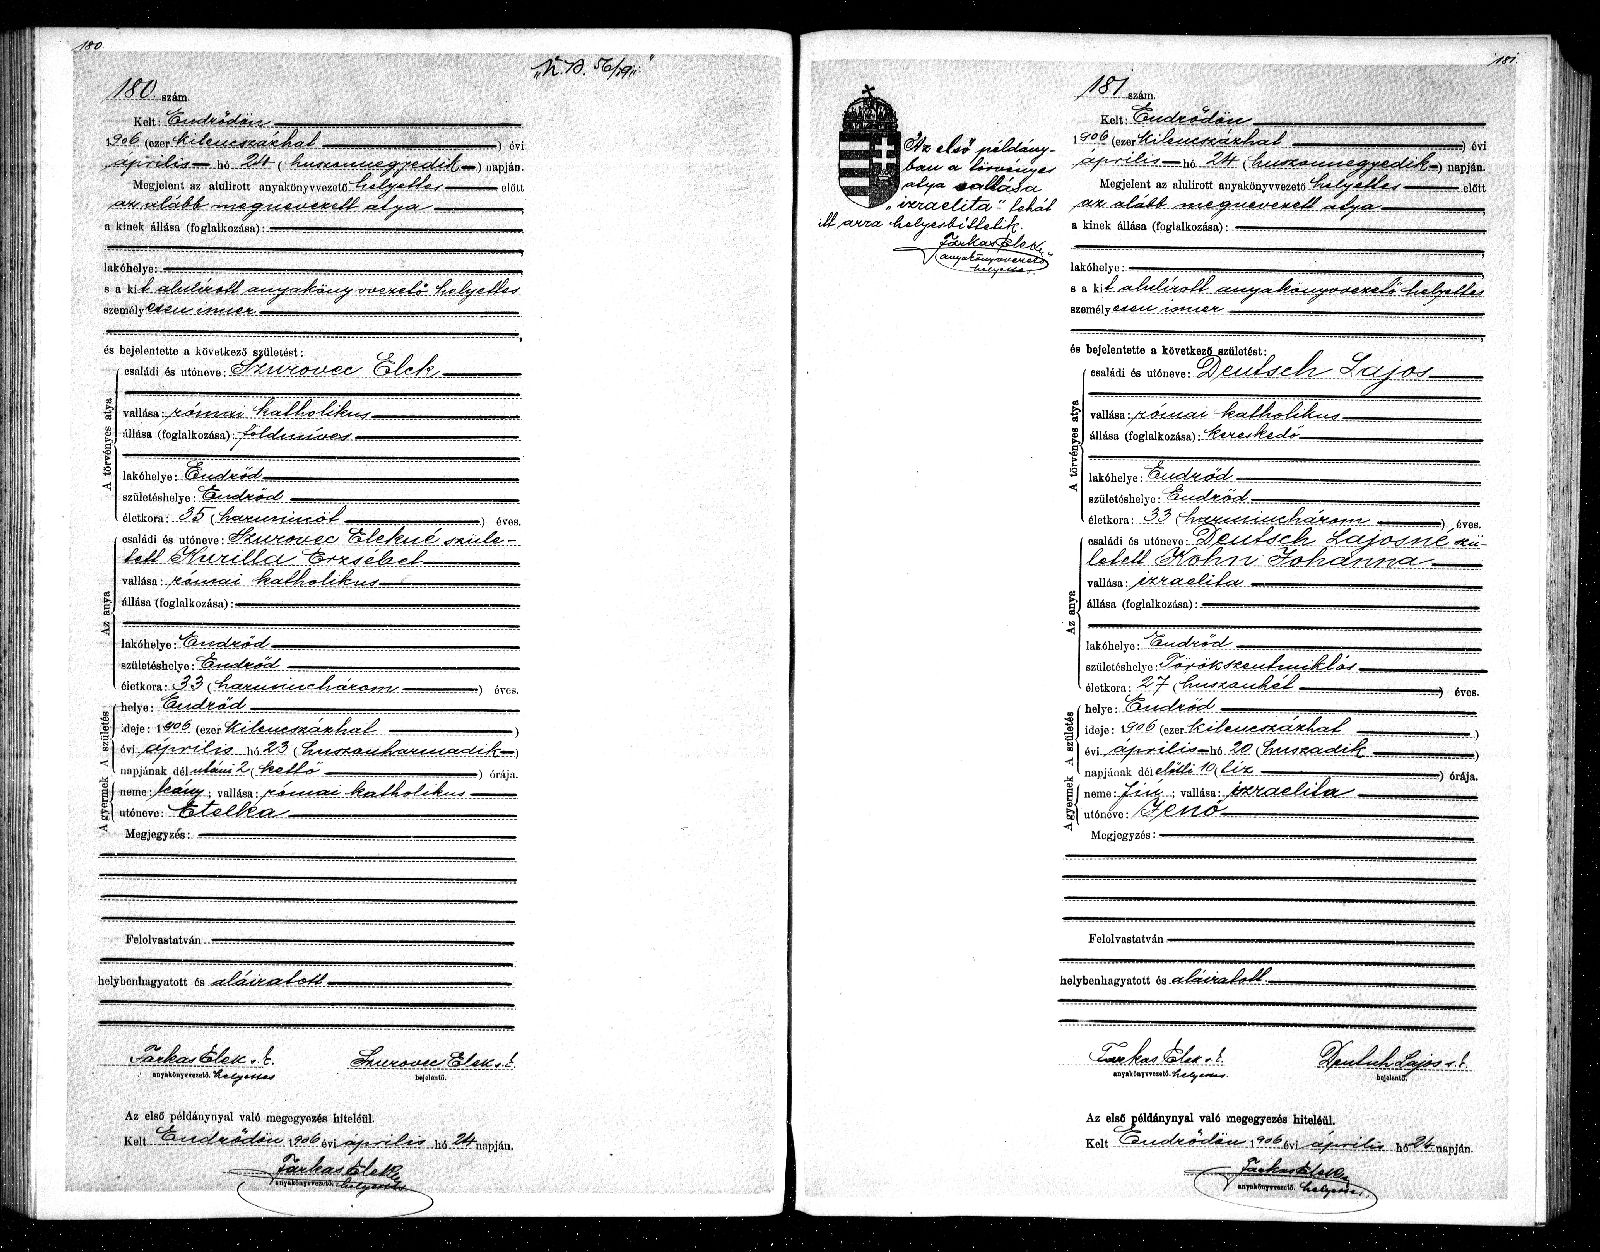 180
180 szám.
Kelt: Endrődön
1906 (ezer kilencszázhat) évi
április hó 24 (huszonnegyedik) napján.
Megjelent az alulirott anyakönyvvezető helyettes előtt
az alább megnevezett atya
a kinek állása (foglalkozása):
lakóhelye:
s a kit alulírott anyakönyvvezető helyettes
személyesen ismer
és bejelentette a következő születést:
A törvényes atya
családi és utóneve: Szurovec Elek
vallása: római katholikus
állása (foglalkozása): földmíves
lakóhelye: Endrőd
születéshelye: Endrőd
életkora: 35 (harmincöt) éves.
Az anya
családi és utóneve: Szurovec Elekné szüle-
tett Kurilla Erzsébet
vallása: római katholikus
állása (foglalkozása):
lakóhelye: Endrőd
születéshelye: Endrőd
életkora: 33 (harminchárom) éves.
A születés
helye: Endrőd
ideje: 1906 (ezer kilencszázhat)
évi április hó 23 (huszonharmadik)
napjának délutáni 2 (kettő) órája.
A gyermek
neme: leány; vallása: római katholikus
utóneve: Etelka
Megjegyzés:
Felolvastatván
helybenhagyatott és aláiratott
Farkas Elek s. k. Szurovec Elek s. k.
anyakönyvvezető helyettes bejelentő.
Az első példánynyal való megegyezés hiteléül.
Kelt Endrődön 1906 évi április hó 24 napján.
Farkas Elek
anyakönyvvezető. helyettes
181
Az első példány-
ban a törvényes
atya vallása
„izraelita" tehát
itt arra helyesbíttetik.
Farkas Elek
anyakönyvvezető
helyettes.
181 szám.
Kelt: Endrődön
1906 (ezer kilencszázhat) évi
április hó 24 (huszonnegyedik) napján.
Megjelent az alulirott anyakönyvvezető helyettes előtt
az alább megnevezett atya
a kinek állása (foglalkozása):
lakóhelye:
s a kit alulírott anyakönyvvezető helyettes
személyesen ismer
és bejelentette a következő születést:
A törvényes atya
családi és utóneve: Deutsch Lajos
vallása: római katholikus
állása (foglalkozása): kereskedő
lakóhelye: Endrőd
születéshelye: Endrőd
életkora: 33 (harminchárom) éves.
Az anya
családi és utóneve: Deutsch Lajosné szü-
letett Kohn Johanna
vallása: izraelita
állása (foglalkozása):
lakóhelye: Endrőd
születéshelye: Törökszentmiklós
életkora: 27 (huszonhét) éves.
A születés
helye: Endrőd
ideje: 1906 (ezer kilencszázhat)
évi április hó 20 (huszadik)
napjának délelőtti 10 (tíz) órája.
A gyermek
neme: fiú; vallása: izraelita
utóneve: Jenő
Megjegyzés:
Felolvastatván
helybenhagyatott és aláiratott
Farkas Elek s. k. Deutsch Lajos s. k.
anyakönyvvezető helyettes bejelentő.
Az első példánynyal való megegyezés hiteléül.
Kelt Endrődön 1906 évi április hó 24 napján.
Farkas Elek
anyakönyvvezető. helyettes.